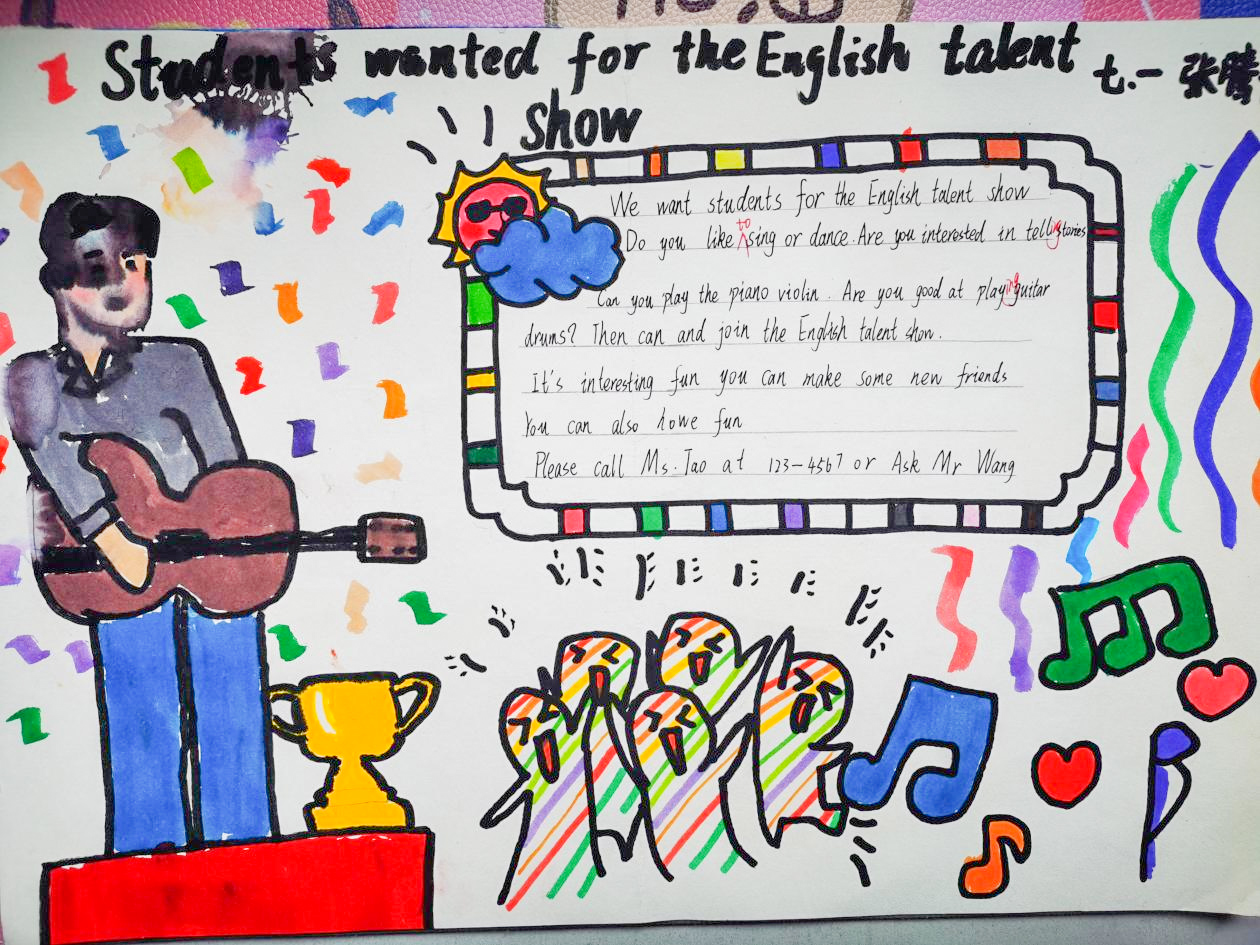 Students wanted for the English talent
t.- 张腾
show
We want students for the English talent show
Do you like to sing or dance. Are you interested in telling stories
Can you play the piano violin. Are you good at playing guitar
drums? Then can and join the English talent show.
It's interesting fun you can make some new friends
You can also howe fun
Please call Ms. Jao at 123-4567 or Ask Mr Wang